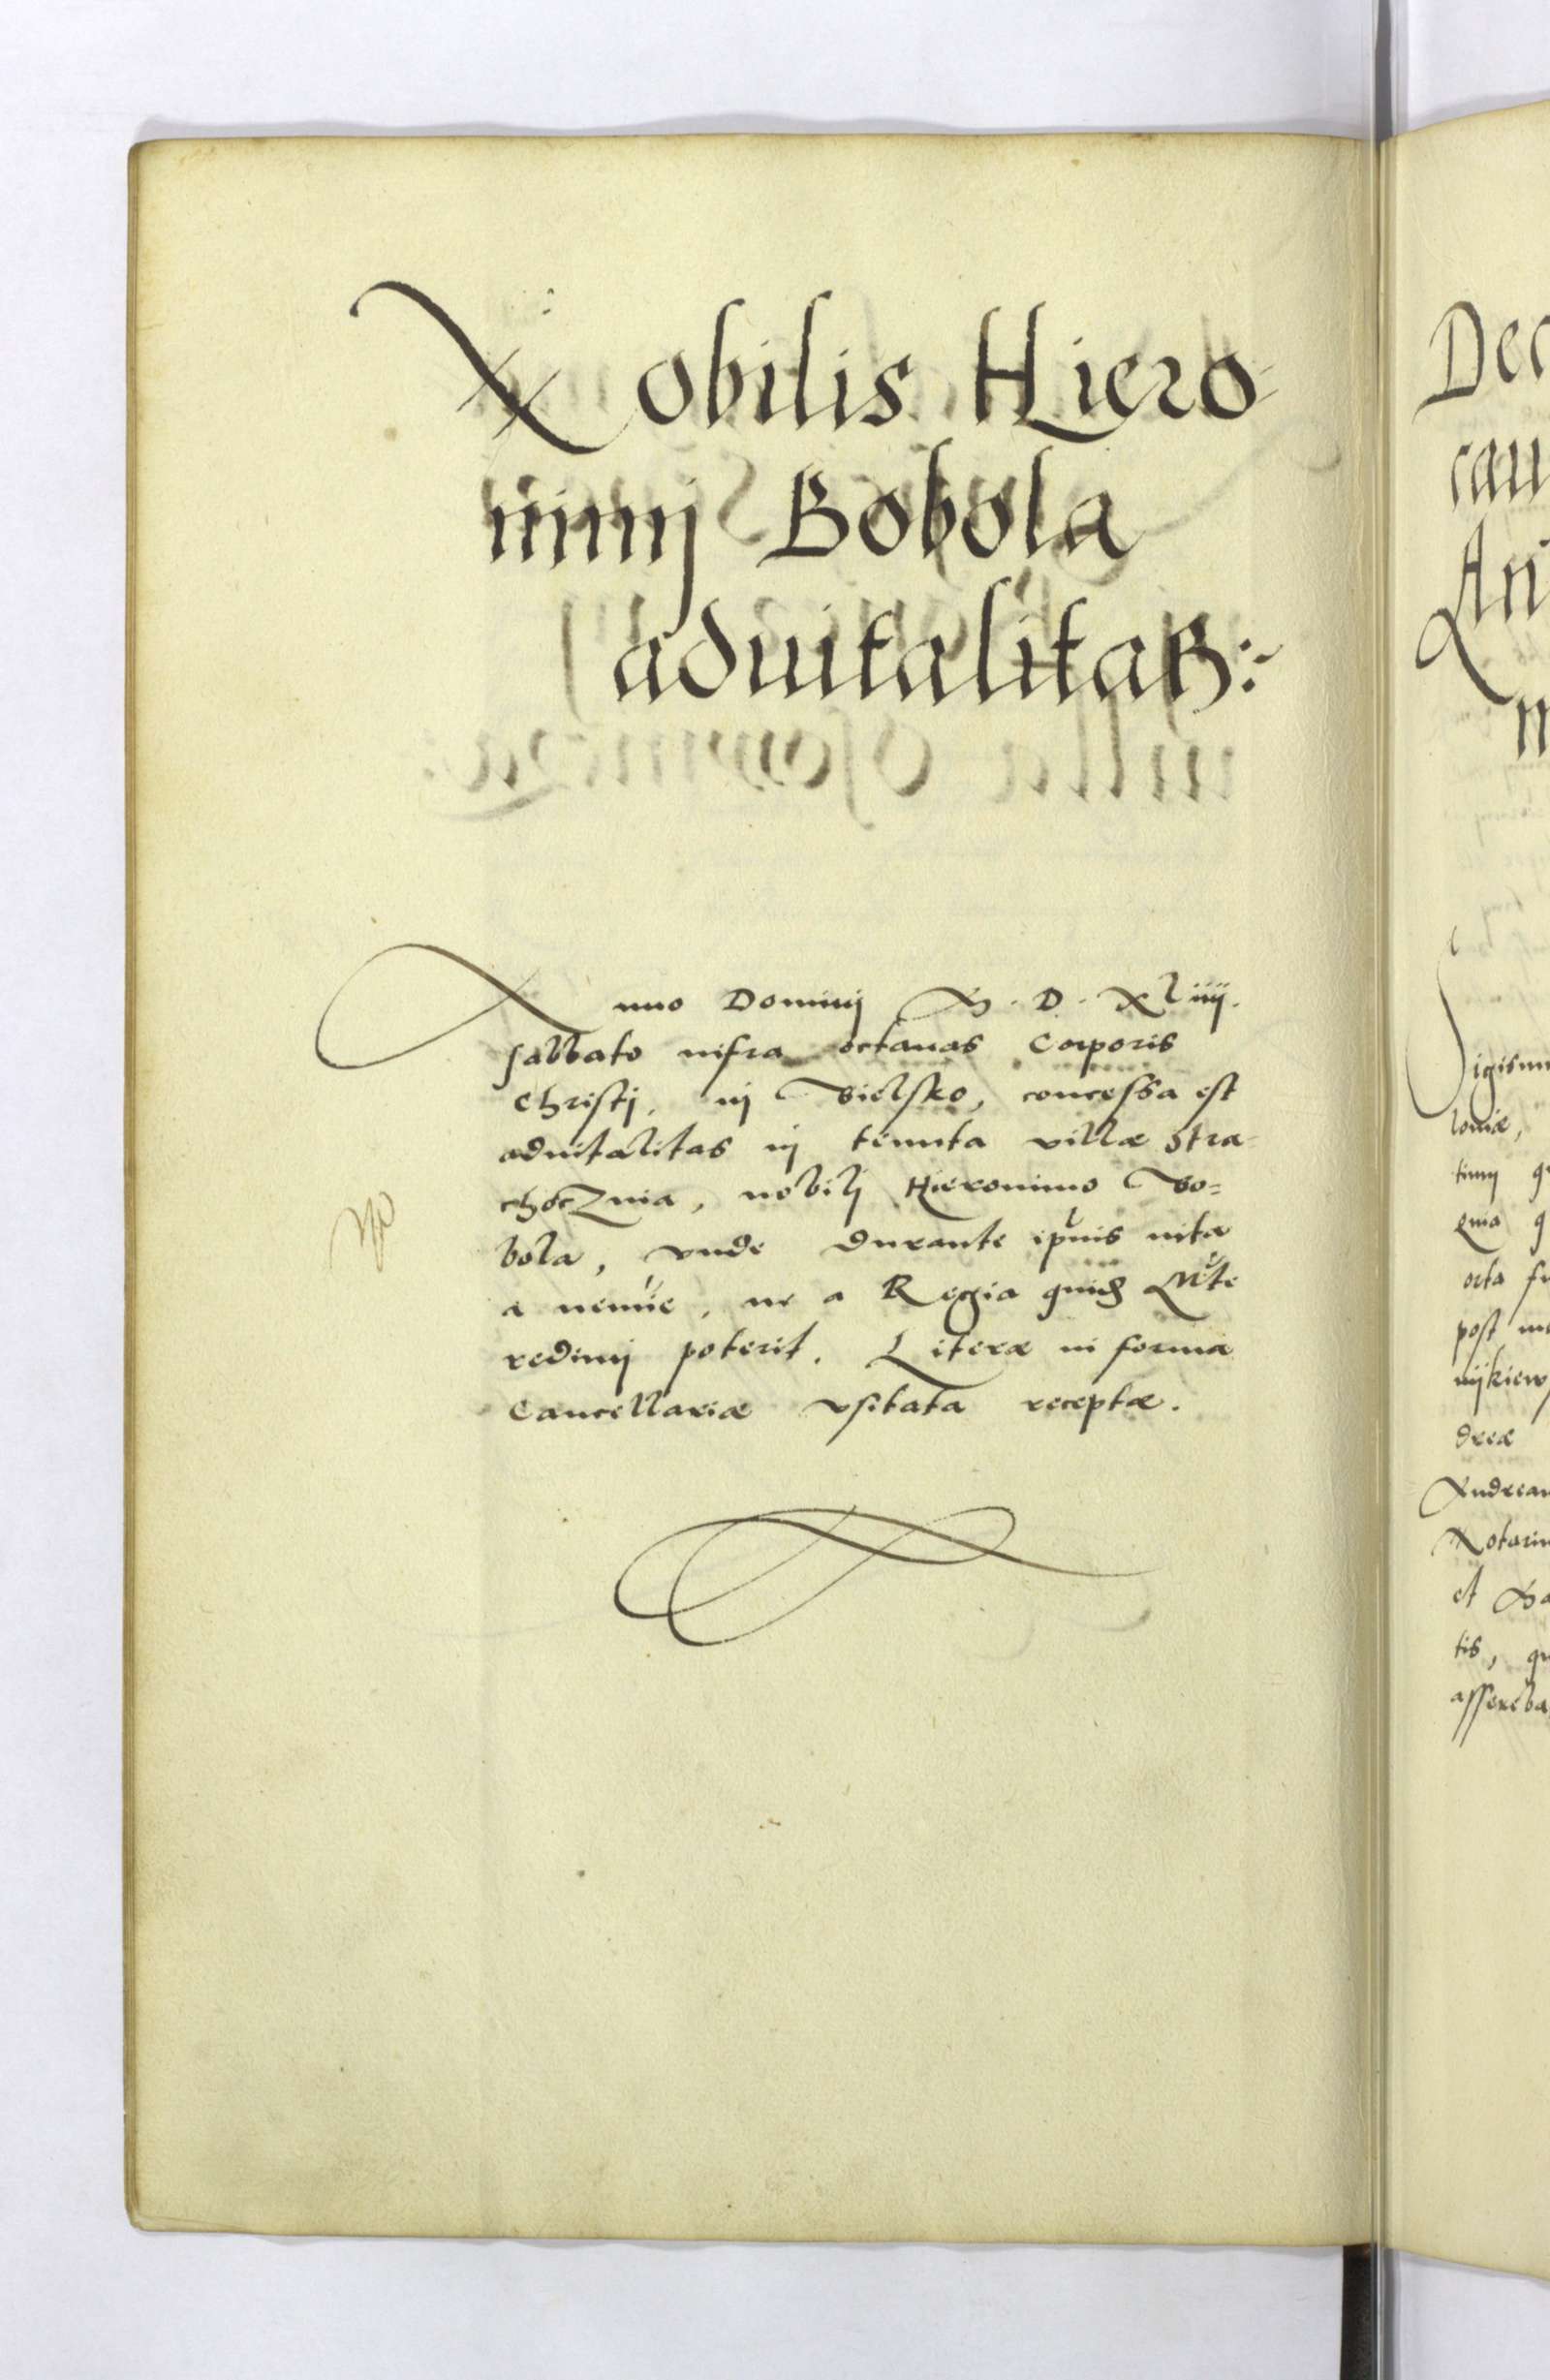 Nobilis Hiero-
nimj Bobola
aduitalitas:
Anno Dominij M. D. Xliiij.
sabbato infra octauas Corporis
Christj, in Bielsko, concessa est
aduitalitas in tenuta villæ Stra-
choczina, nobilj Hieronimo Bo=
bola, vnde durante ipius vita
a nemie, ne a Regia quidem Mte
redimj poterit. Literæ in forma
Cancellariæ vsitata receptæ.
Dec
cau
An
m
Sigismu
loniæ,
timj
octa
post
nijkiew
dreæ
Andrea
Notariu
et
tis, qu
assereba